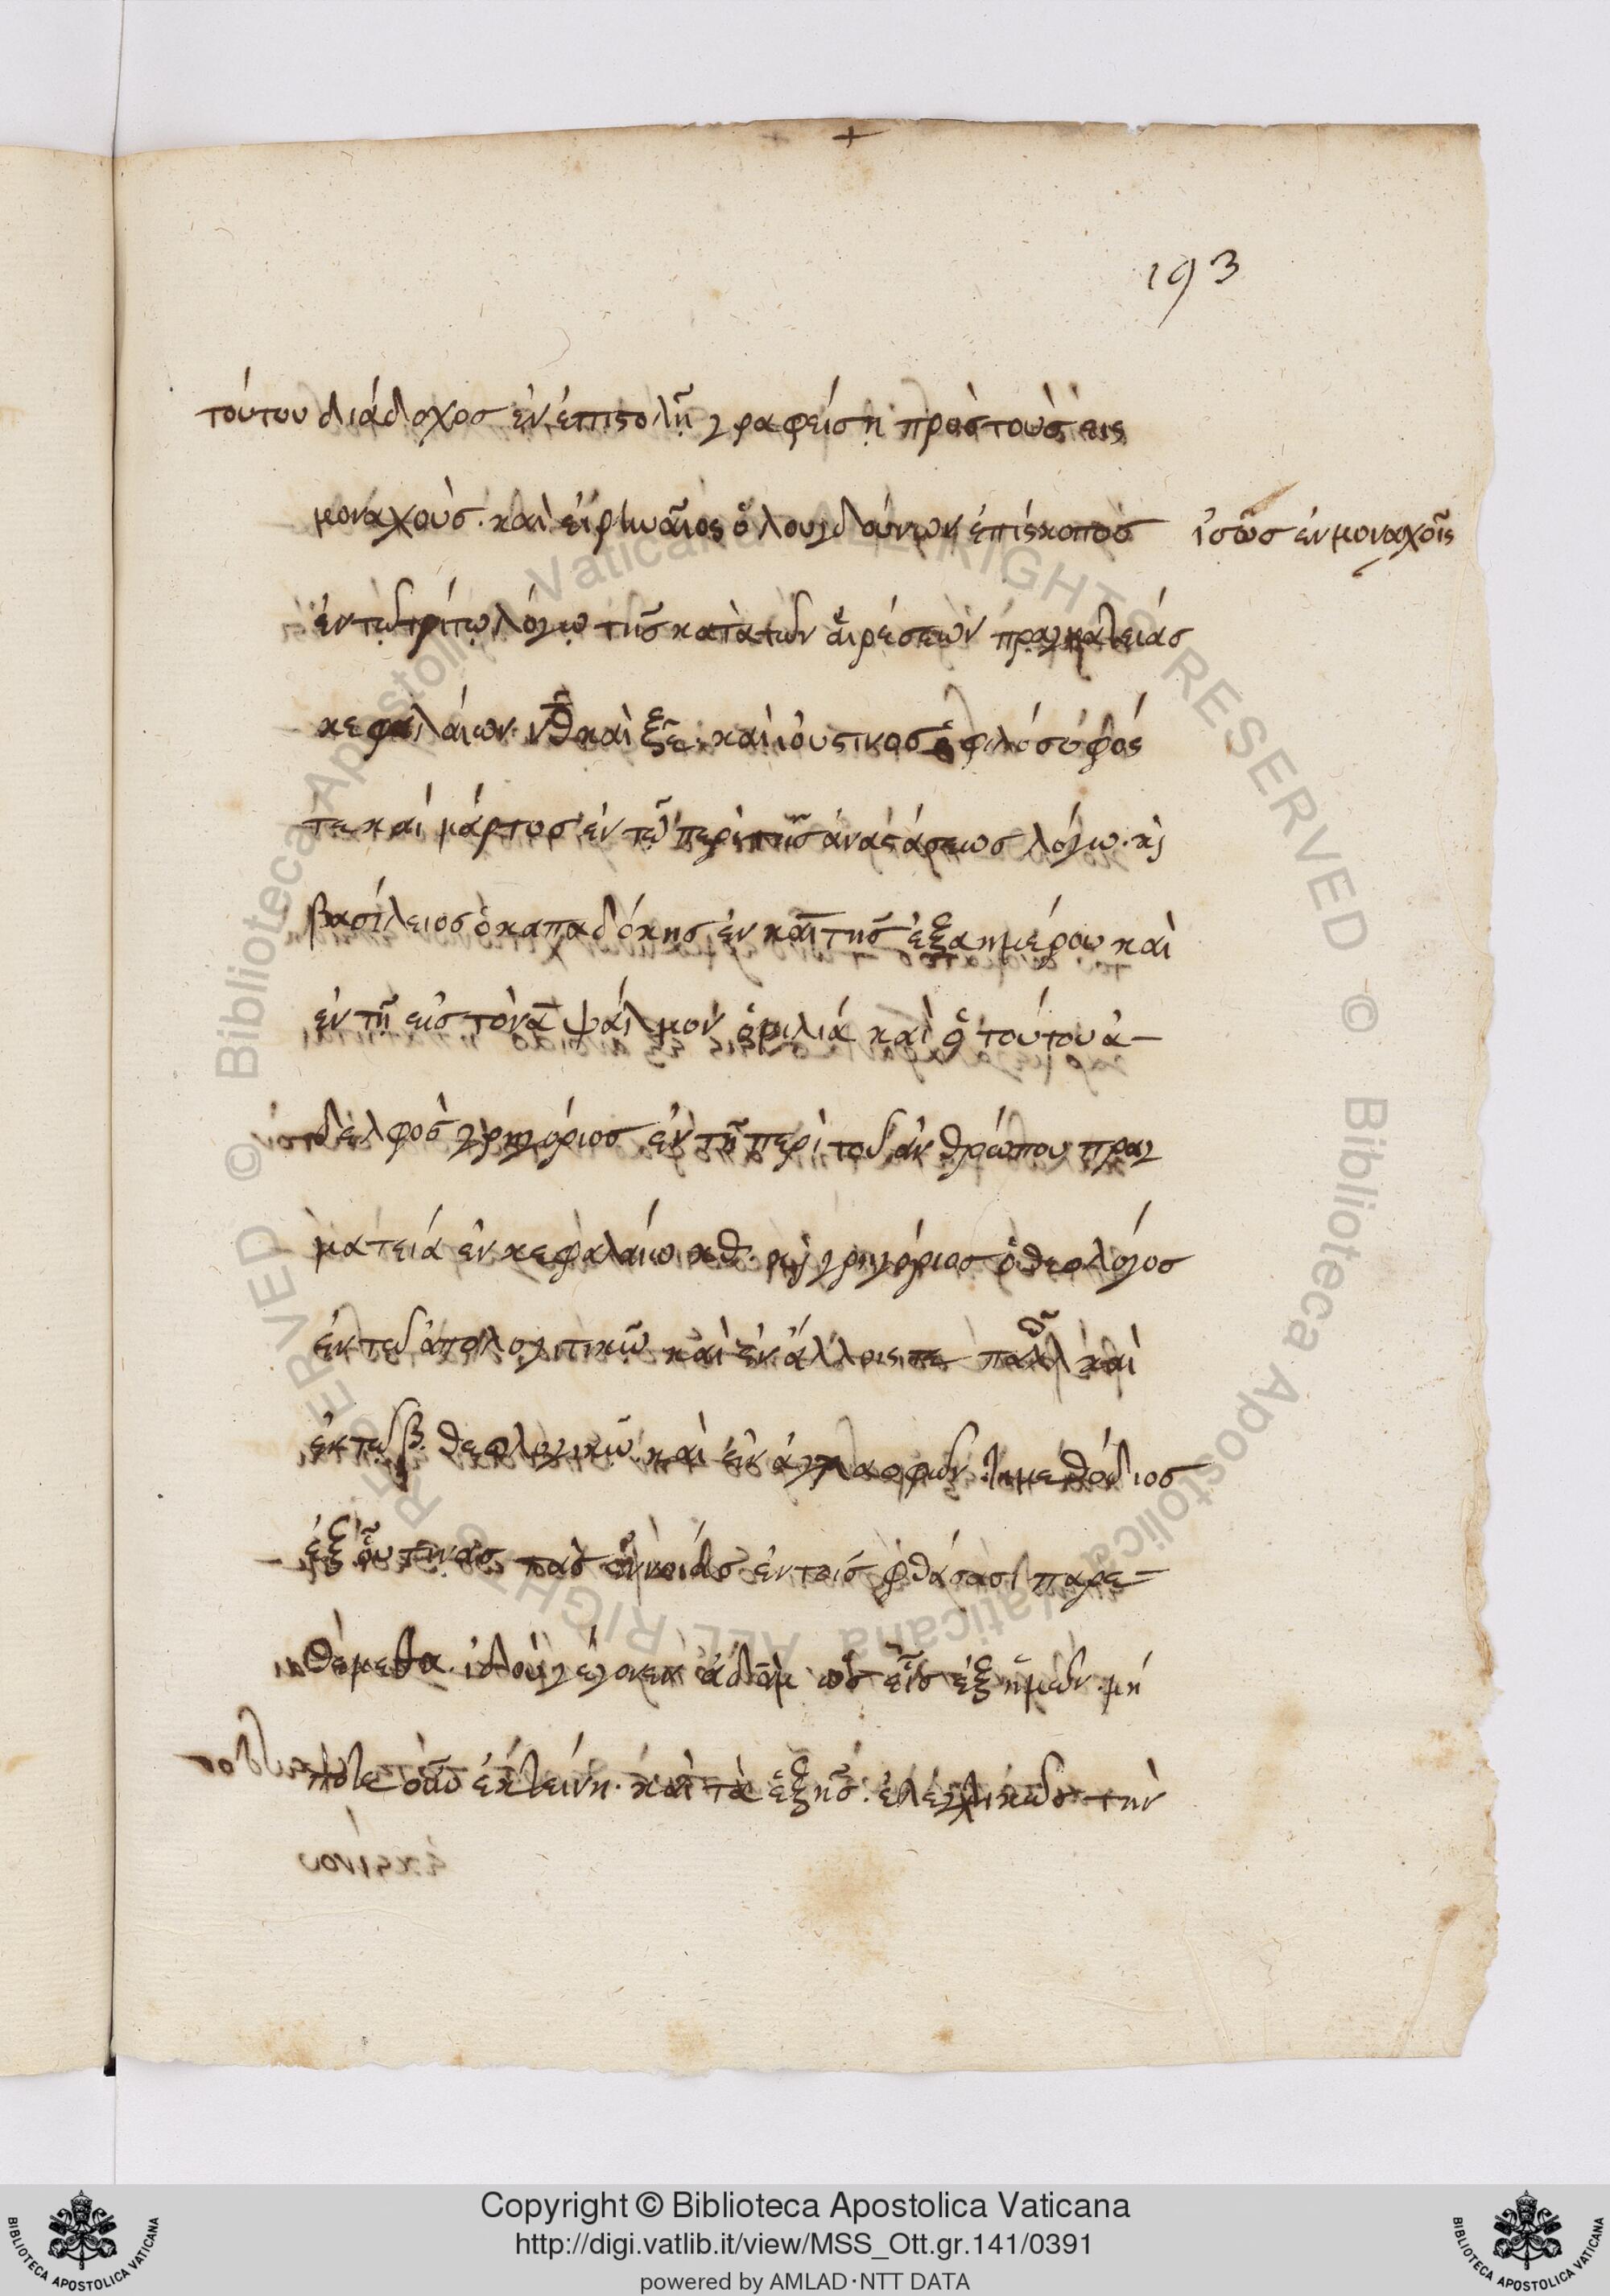 193
τούτου διάδοχος ἐν ἐπιστολῇ γραφείσῃ πρὸς τοὺς εις
μοναχοὺς. καὶ εἰρηναῖος ὁ λουγδούνων ἐπίσκοπος
ἰσῶς ἐν μοναχοῖς
ἐν τῷ τρίτῳ λόγῳ τῆς κατὰ τῶν αἱρέσεων πραγματείας
κεφαλαίων. νθ καὶ ξε. καὶ ἰουστινος ὁ φιλόσοφός
τε καί μάρτυς ἐν τῶ περὶ τῆς ἀναστάσεως λόγω. κὶ
βασίλειος ὁ καπαδόκης ἐν και τῆς ἑξαημέρου καὶ
ἐν τῇ εις τὸν α ψάλμον ὁμιλιά καὶ ὁ τούτου ἀ-
δελφὸς γρηγόριος ἐν τῇ περὶ τοῦ ἀνθρώπου πραγ
ματειά ἐν κεφαλαίω κθ. κὶ γρηγόριος ὁ θεολόγος
ἐν τῶ ἀπολογιτικῶ καὶ ἐν ἄλλοις τε παλλ καὶ
ἐν τῶ β. θεολογικῶ. καὶ ἐν μεθόδιος
ἐξ οὗ τινὰς ἐν τοίς φθάσασι παρε-
θέμεθα. ἰδοὺ γέγονεν ἀδὰμ ὡς εἷς ἐξ ἡμῶν. μή
ποτε οὖν ἐκτείνη. καὶ τὰ ἑξῆς. ἐλεγκτικῶς τὴν
Copyright © Biblioteca Apostolica Vaticana
http://digi.vatlib.it/view/MSS_Ott.gr.141/0391
powered by AMLAD·NTT DATA
BIBLIOTECA APOSTOLICA VATICANA
BIBLIOTECA APOSTOLICA VATICANA
© Biblioteca Apostolica Vaticana ALL RIGHTS RESERVED
© Biblioteca Apostolica Vaticana ALL RIGHTS RESERVED